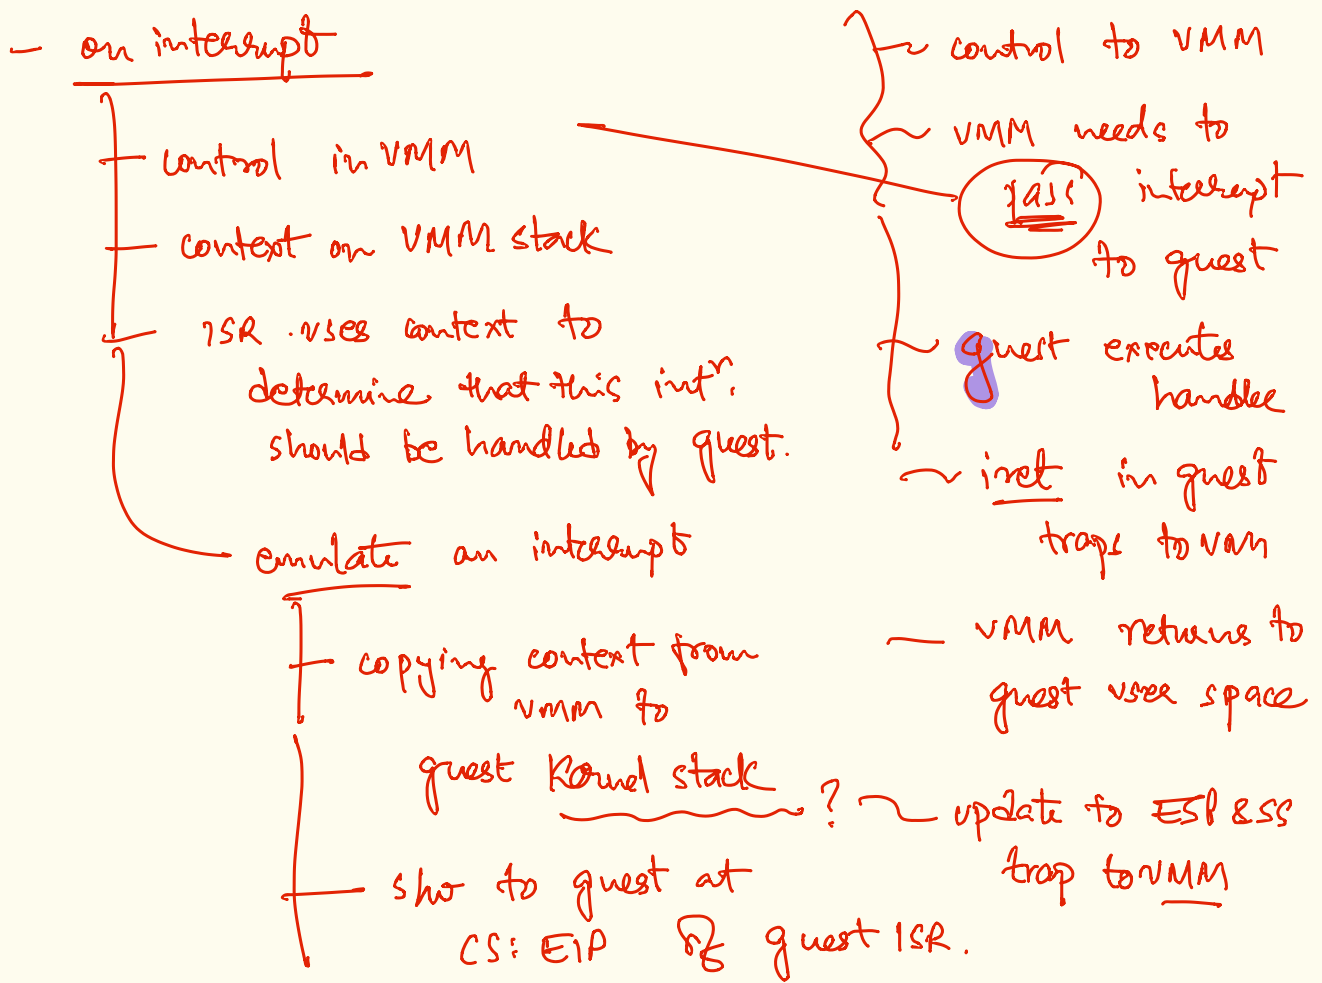 - on interrupt
- control in VMM
- context on VMM stack
- ISR uses context to
determine that this intr.
should be handled by guest.
emulate an interrupt
- copying context from
VMM to
guest Kernel stack ?
- to guest at
CS:EIP of guest ISR.
- control to VMM
- VMM needs to
pass interrupt
to guest
- guest executes
handler
- iret in guest
traps to VMM
- VMM returns to
guest user space
update to ESP & SS
trap to VMM